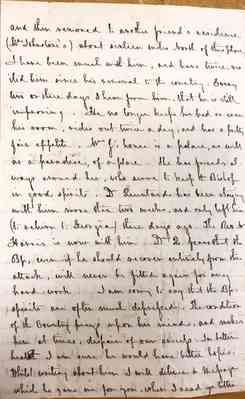 and then removed to another friend's residence
(Mr Johnston's) about sixteen miles North of this place
I have been much with him, and have twice vis
ited him since his removal to the country. Every
two or three days I hear from him, that he is still
improving. He no longer keeps his bed or even
his room, rides out twice a day, and has a fully
fine appetite. Mr J's house is a palace, as well
as a paradise, of a place. He has friends al
ways around him, who serve to keep the Bishop
in good spirits. Dr has been staying
with him more than two weeks, and only left him
(to return to Georgia) three days ago. The Rev. Mr
Harris is now with him. Dr 2. fears that the
Bp, even if he should recover entirely from the
attack, will never be fitted again for any
hard work. I am sorry to say that the Bp's
spirits are often much depressed. The condition
of the Country preys upon his mind, and makes
him at times, despair of our success. In better
health I am sure he would have better hopes.
While writing about him I will deliver a Message
which he gave me for you, when I read yr letter